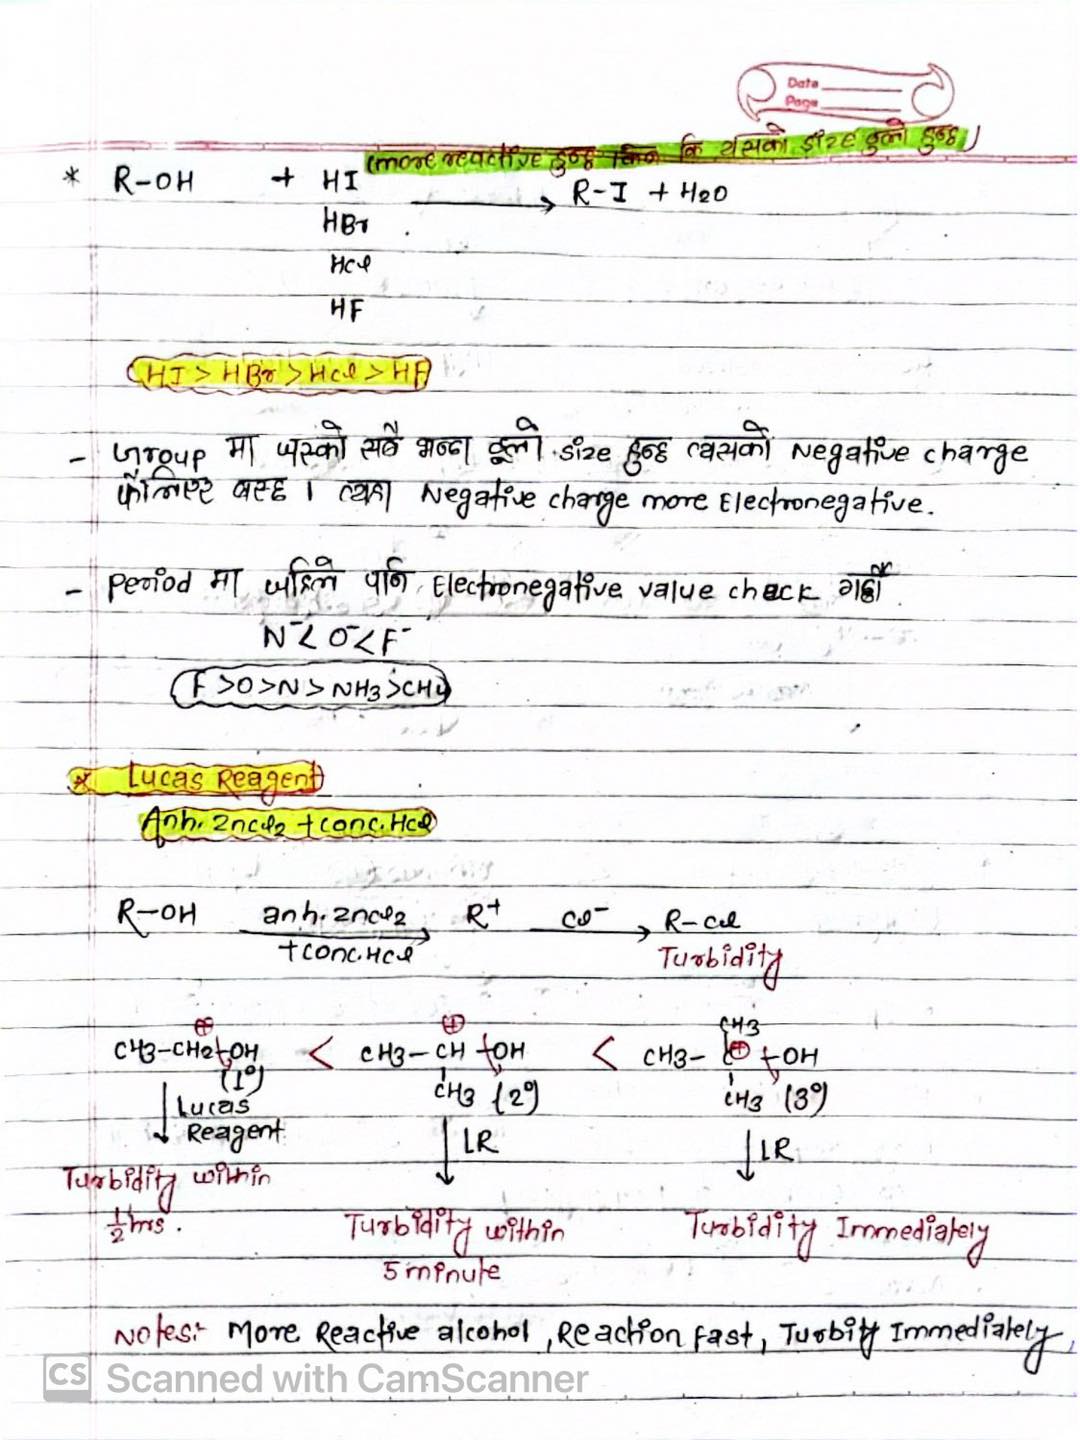 Date
Page
(more reactive हुन्छ किन कि यसको size ठुलो हुन्छ)
* R-OH + HI → R-I + H2O
HBr
HCl
HF
HI > HBr > HCl > HF
- Group मा जस्को सबै भन्दा ठूलो size हुन्छ त्यसको Negative charge
फैलिएर बस्छ । त्यस Negative charge more Electronegative.
- Period मा जहिले पनि Electronegative value check गर्ने
N⁻ < O⁻ < F⁻
F > O > N > NH3 > CH4
* Lucas Reagent
Anh. ZnCl2 + conc. HCl
R-OH anh. ZnCl2 R⁺ Cl⁻ R-Cl
+ conc. HCl Turbidity
⊕ ⊕ CH3
CH3-CH2-OH < CH3-CH-OH < CH3-C⊕-OH
(1°) CH3 (2°) CH3 (3°)
Lucas Reagent LR LR
Turbidity within
1/2 hrs. Turbidity within Turbidity Immediately
5 minute
Notes:- More Reactive alcohol, Reaction Fast, Turbity Immediately,
CS Scanned with CamScanner